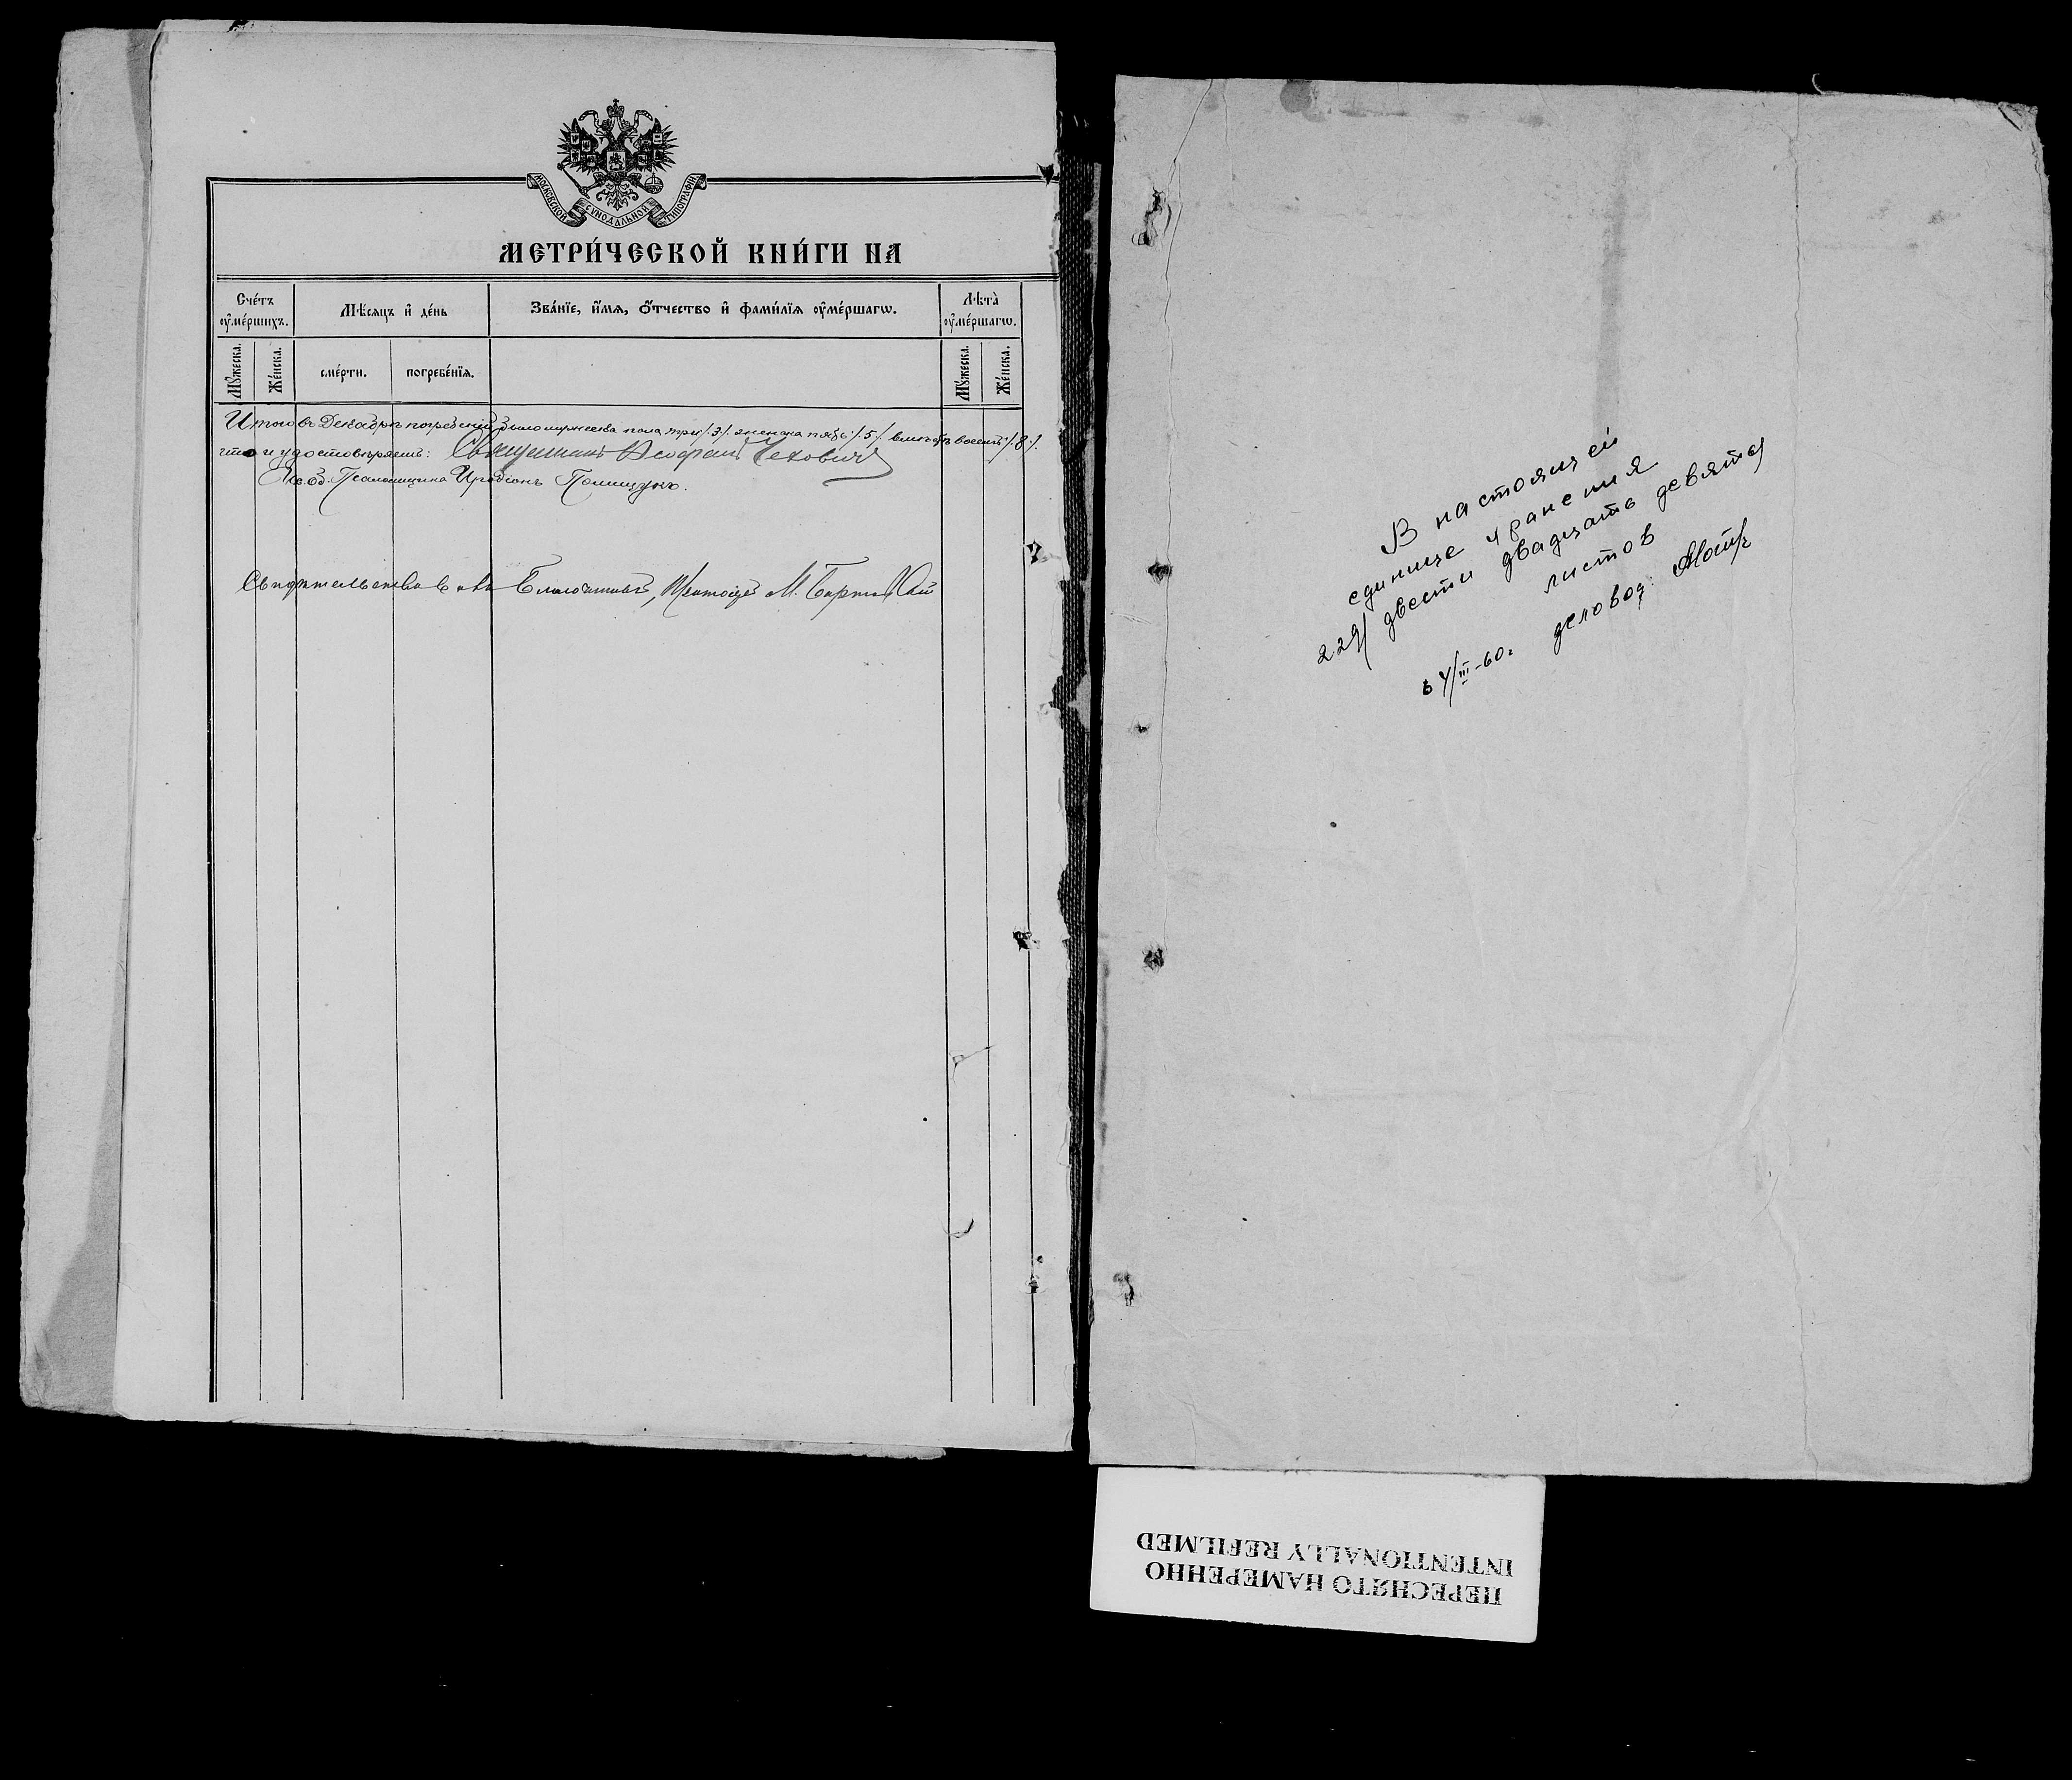 МОСКОВСКОЙ СѴНОДАЛЬНОЙ ТИПОГРАФІИ
МЕТРИ́ЧЕСКОЙ КНИ́ГИ НА
Сче́тъ ᲂу҆ме́ршихъ.
Мѣ́сяцъ и҆ де́нь
Зва́нїе, и҆́мѧ, ѻ҆́тчество и҆ фами́лїѧ ᲂу҆ме́ршагѡ.
Лѣ̀та ᲂу҆ме́ршагѡ.
Мꙋ́жеска.
Же́нска.
сме́рти.
погребе́нїѧ.
Мꙋ́жеска.
Же́нска.
Итого въ Декабрѣ погребеній было мужеска пола три /.3./ женска пять /.5./ вмѣстѣ восемь /.8./.
что и удостовѣряемъ: Священникъ Ѳеофанъ Чеховичъ
И. об. Псаломщика Иродіонъ Полищукъ.
Свидѣтельствовалъ Благочинный, М.
В настоящей
единице хранения
229/ двести двадцать девять/
листов
4/III-60г деловод:
ПЕРЕСНЯТО НАМЕРЕННО
INTENTIONALLY REFILMED